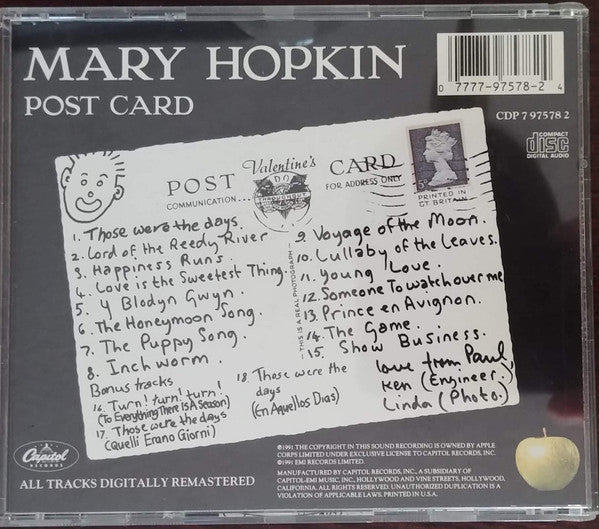 MARY HOPKIN
POST CARD
0 7777-97578-2 4
CDP 7 97578 2
COMPACT
disc
DIGITAL AUDIO
POST Valentine's CARD
COMMUNICATION
FOR ADDRESS ONLY
PRINTED IN
GT. BRITAIN
THIS IS A REAL PHOTOGRAPH
1. Those were the days.
2. Lord of the Reedy River
3. Happiness Runs.
4. Love is the Sweetest Thing.
5. Y Blodyn Gwyn.
6. The Honeymoon Song.
7. The Puppy Song.
8. Inchworm.
Bonus tracks
16. Turn! turn! turn!
(To Everything There IS A Season)
17. Those were the days
(Quelli Erano Giorni)
18. Those were the
days
(En Aquellos Dias)
9. Voyage of the Moon.
10. Lullaby of the Leaves.
11. Young Love.
12. Someone To watch over me
13. Prince en Avignon.
14. The Game.
15. Show Business.
love from Paul
Ken (Engineer.)
Linda (Photo.)
Capitol
RECORDS
ALL TRACKS DIGITALLY REMASTERED
©1991 THE COPYRIGHT IN THIS SOUND RECORDING IS OWNED BY APPLE
CORPS LIMITED UNDER EXCLUSIVE LICENSE TO CAPITOL RECORDS, INC.
©1991 EMI RECORDS LIMITED.
MANUFACTURED BY CAPITOL RECORDS, INC., A SUBSIDIARY OF
CAPITOL-EMI MUSIC, INC., HOLLYWOOD AND VINE STREETS, HOLLYWOOD,
CALIFORNIA. ALL RIGHTS RESERVED. UNAUTHORIZED DUPLICATION IS A
VIOLATION OF APPLICABLE LAWS. PRINTED IN U.S.A.